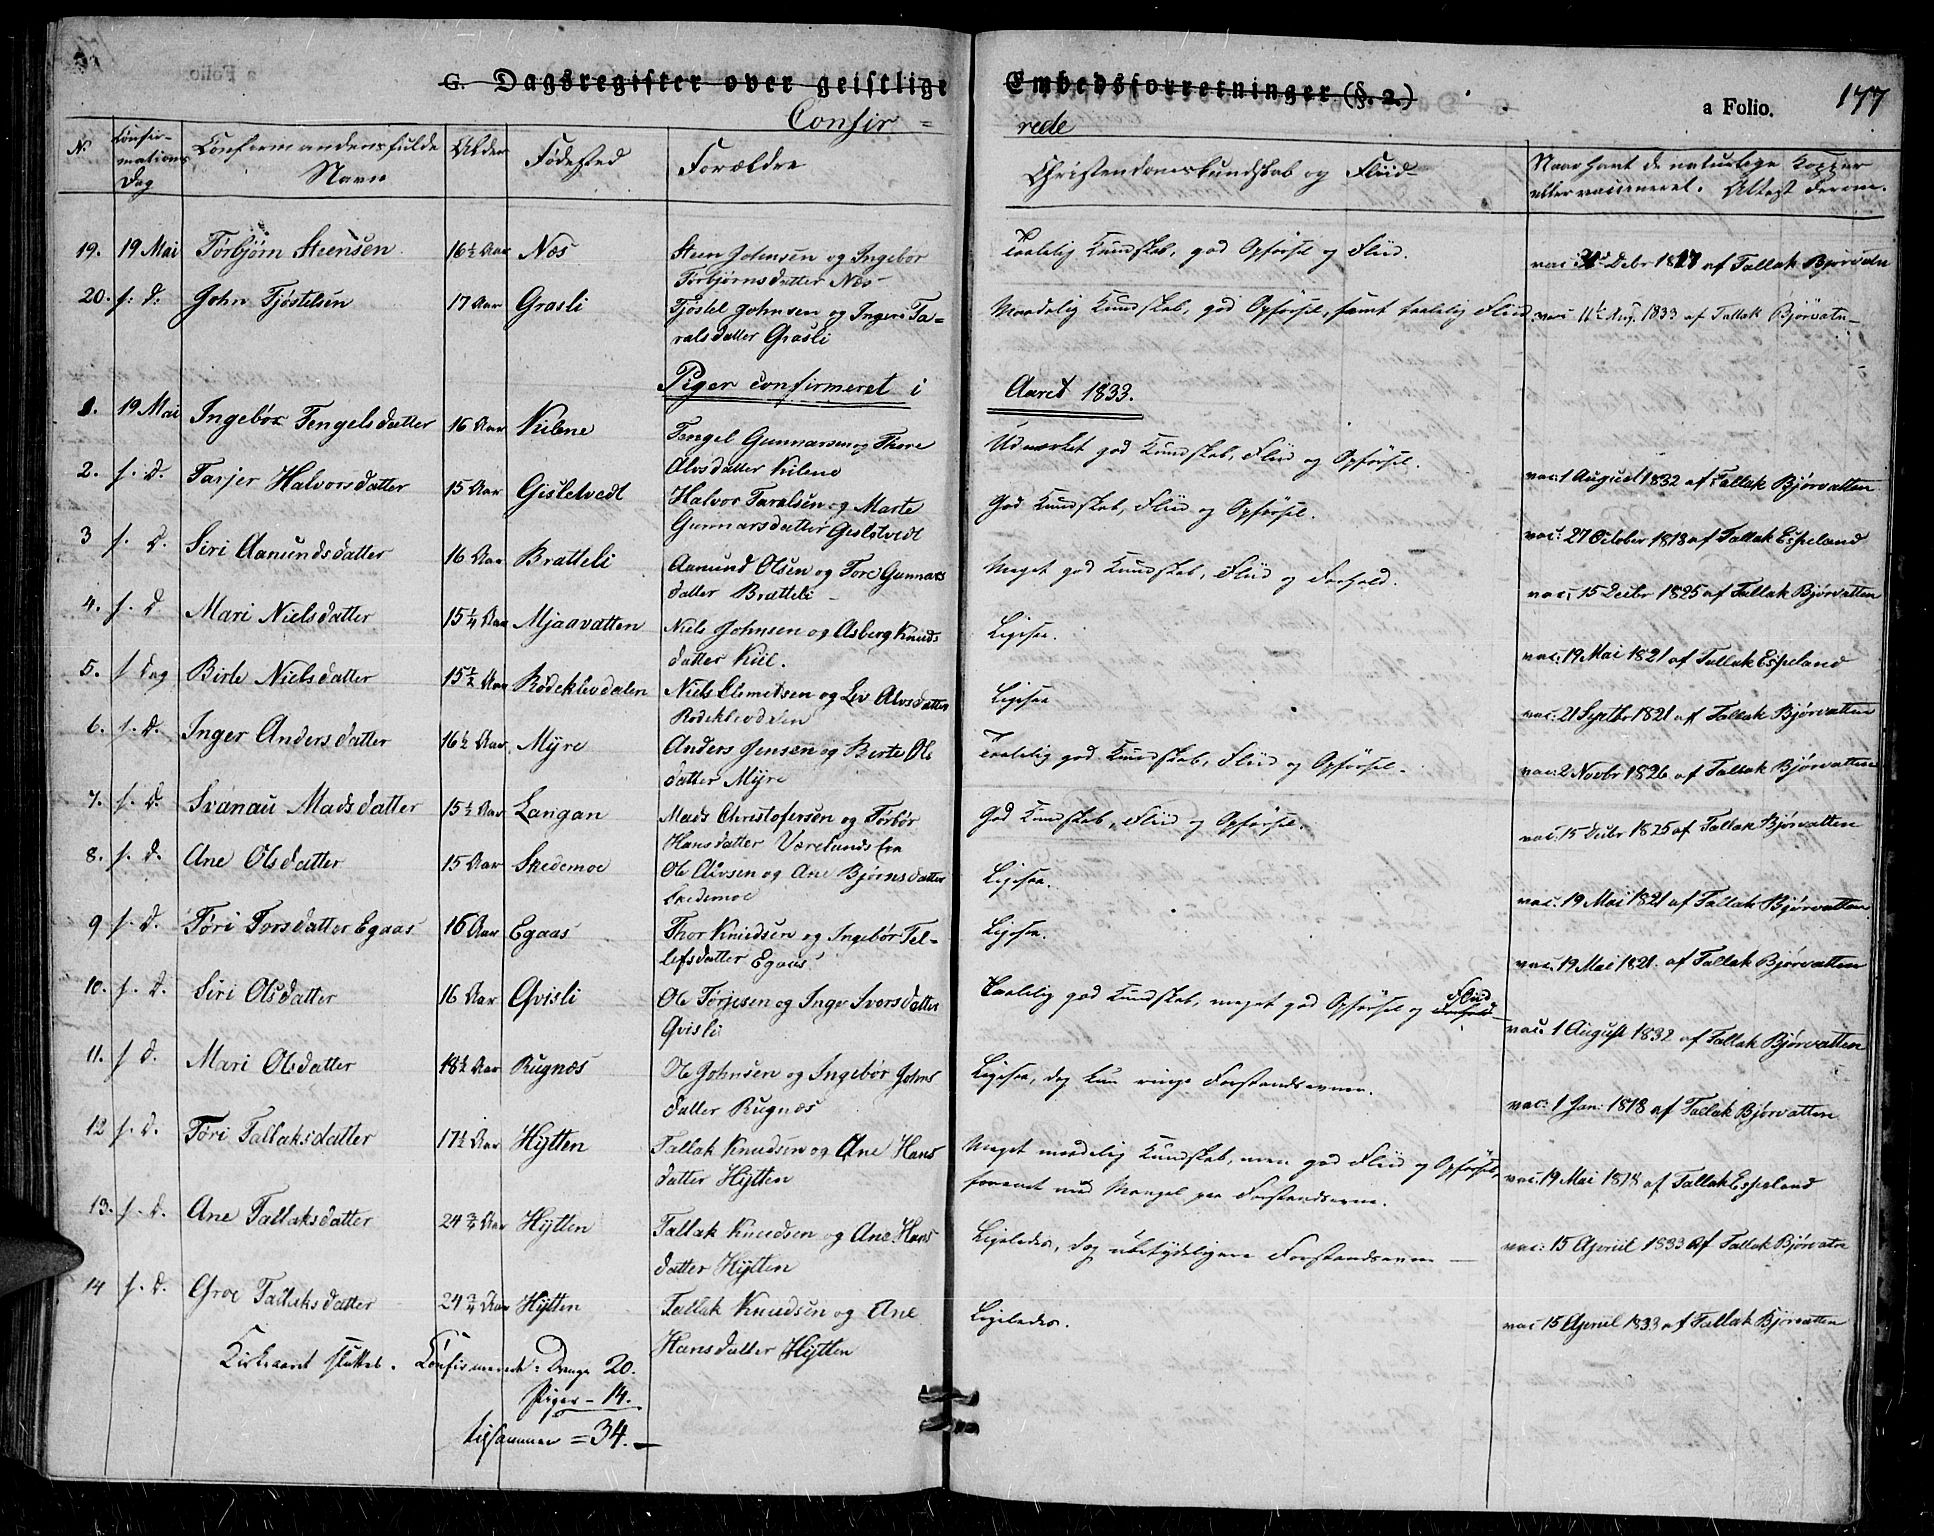 G. Dagsregister over geistlige Embedsforretninger (§. 2.) a Folio. 177
Confir = rede
No. Confir-mations Dag Confirmandens fulde Navn Alder Fødested Forældre Christendomskundskab og Fliid Naar havt de naturlige Kopper eller vaccineret. Attest derom.
19. 19 Mai Tørbjørn Steensen 16½ Aar Nes Steen Johnsen og Ingebor Taalelig Kundskab, god Opførsel og Fliid. vac: Debr 1817 af Tallak Bjørvatn
Tørbjørnsdatter Nes
20. s: D: John Tjøstelsen 17 Aar Grasli Tjøstel Johnsen og Inger Ta= Maadelig Kundskab, god Opførsel, samt taalelig Fliid vac: Aug. 1833 af Tallak Bjørvatn
ralsdatter Grasli
Piger confirmeret i Aaret 1833.
1. 19 Mai Ingebør Tengelsdatter 16 Aar Kilene Tengel Gunnarsen og Thore Udmærket god Kundskab, Fliid og Opførsel. vac: 1 August 1832 af Tallak Bjørvatten
Alvsdatter Kilene
2. s. D. Tarjer Halvorsdatter 15 Aar Gisletvedt Halvor Taralsen og Marte God Kundskab, Fliid og Opførsel. vac: 27 October 1818 af Tallak Espeland
Gunnarsdatter Gisletvedt
3 s. D. Siri Aanundsdatter 16 Aar Bratteli Aanund Olsen og Tore Gunnars Meget god Kundskab, Fliid og Forhold. vac: 15 Decbr 1825 af Tallak Bjørvatten
datter Bratteli
4. s. D Mari Nielsdatter 15¼ Aar Mjaavatten Niels Johnsen og Asberg Knuds Ligesaa. vac: 19 Mai 1821 af Tallak Espeland
datter Kiil.
5. s Dag Birte Nielsdatter 15½ Aar Rødeklevdalen Niels Clemetsen og Liv Alvsdatter Ligesaa vac: 21 Septbr 1821 af Tallak Bjørvatten
Rødeklevdalen
6. s. D. Inger Andersdatter 16½ Aar Myre Anders Jensen og Berte Ols Taalelig god Kundskab, Fliid og Opførsel. vac: 2 Novbr 1826 af Tallak Bjørvatten
datter Myre
7. s. D. Svanau Madsdatter 15½ Aar Langan Mads Christofersen og Tørbør God Kundskab, Fliid og Opførsel. vac: 15 Decbr 1825 af Tallak Bjørvatten
Hansdatter
8. s. D. Ane Olsdatter 15 Aar Skedemoe Ole Alvsen og Ane Bjørnsdatter Ligesaa. vac: 19 Mai 1821 af Tallak Bjørvatten
Skedemoe
9 s. D. Tøri Torsdatter Egaas 16 Aar Egaas Thor Knudsen og Ingebør Tel- Ligesaa. vac: 19 Mai 1821. af Tallak Bjørvatten
lefsdatter Egaas
10. s. D. Siri Olsdatter 16 Aar Qvisli Ole Tørjesen og Inger Iversdatter Taalelig god Kundskab, meget god Opførsel og Forhold Fliid vac: 1 August 1832 af Tallak Bjørvatten
Qvisli
11. s D. Mari Olsdatter 18½ Aar Rugnæs Ole Johnsen og Ingebør Johns Ligesaa, dog kun ringe Forstandsevner. vac: 1 Jan: 1818 af Tallak Bjørvatten
datter Rugnæs
12 s. D. Tøri Tallaksdatter 17½ Aar Hytten Tallak Knudsen og Ane Hans Meget maadelig Kundskab, men god Fliid og Opførsel, vac: 19 Mai 1818 af Tallak Espeland
datter Hytten forenet med Mangel paa Forstandsevne.
13. s. D. Ane Tallaksdatter 24¾ Aar Hytten Tallak Knudsen og Ane Hans Ligeledes, dog ubetydeligere Forstandsevne vac: 15 April 1833 af Tallak Bjørvatn
datter Hytten
14 s. D. Groe Tallaksdatter 24¾ Aar Hytten Tallak Knudsen og Ane Ligeledes. vac: 15 April 1833 af Tallak Bjørvatten
Hansdatter Hytten
Kirkeaaret sluttet. Confirmerede: Drenge 20.
Piger - 14.
tilsammen = 34.